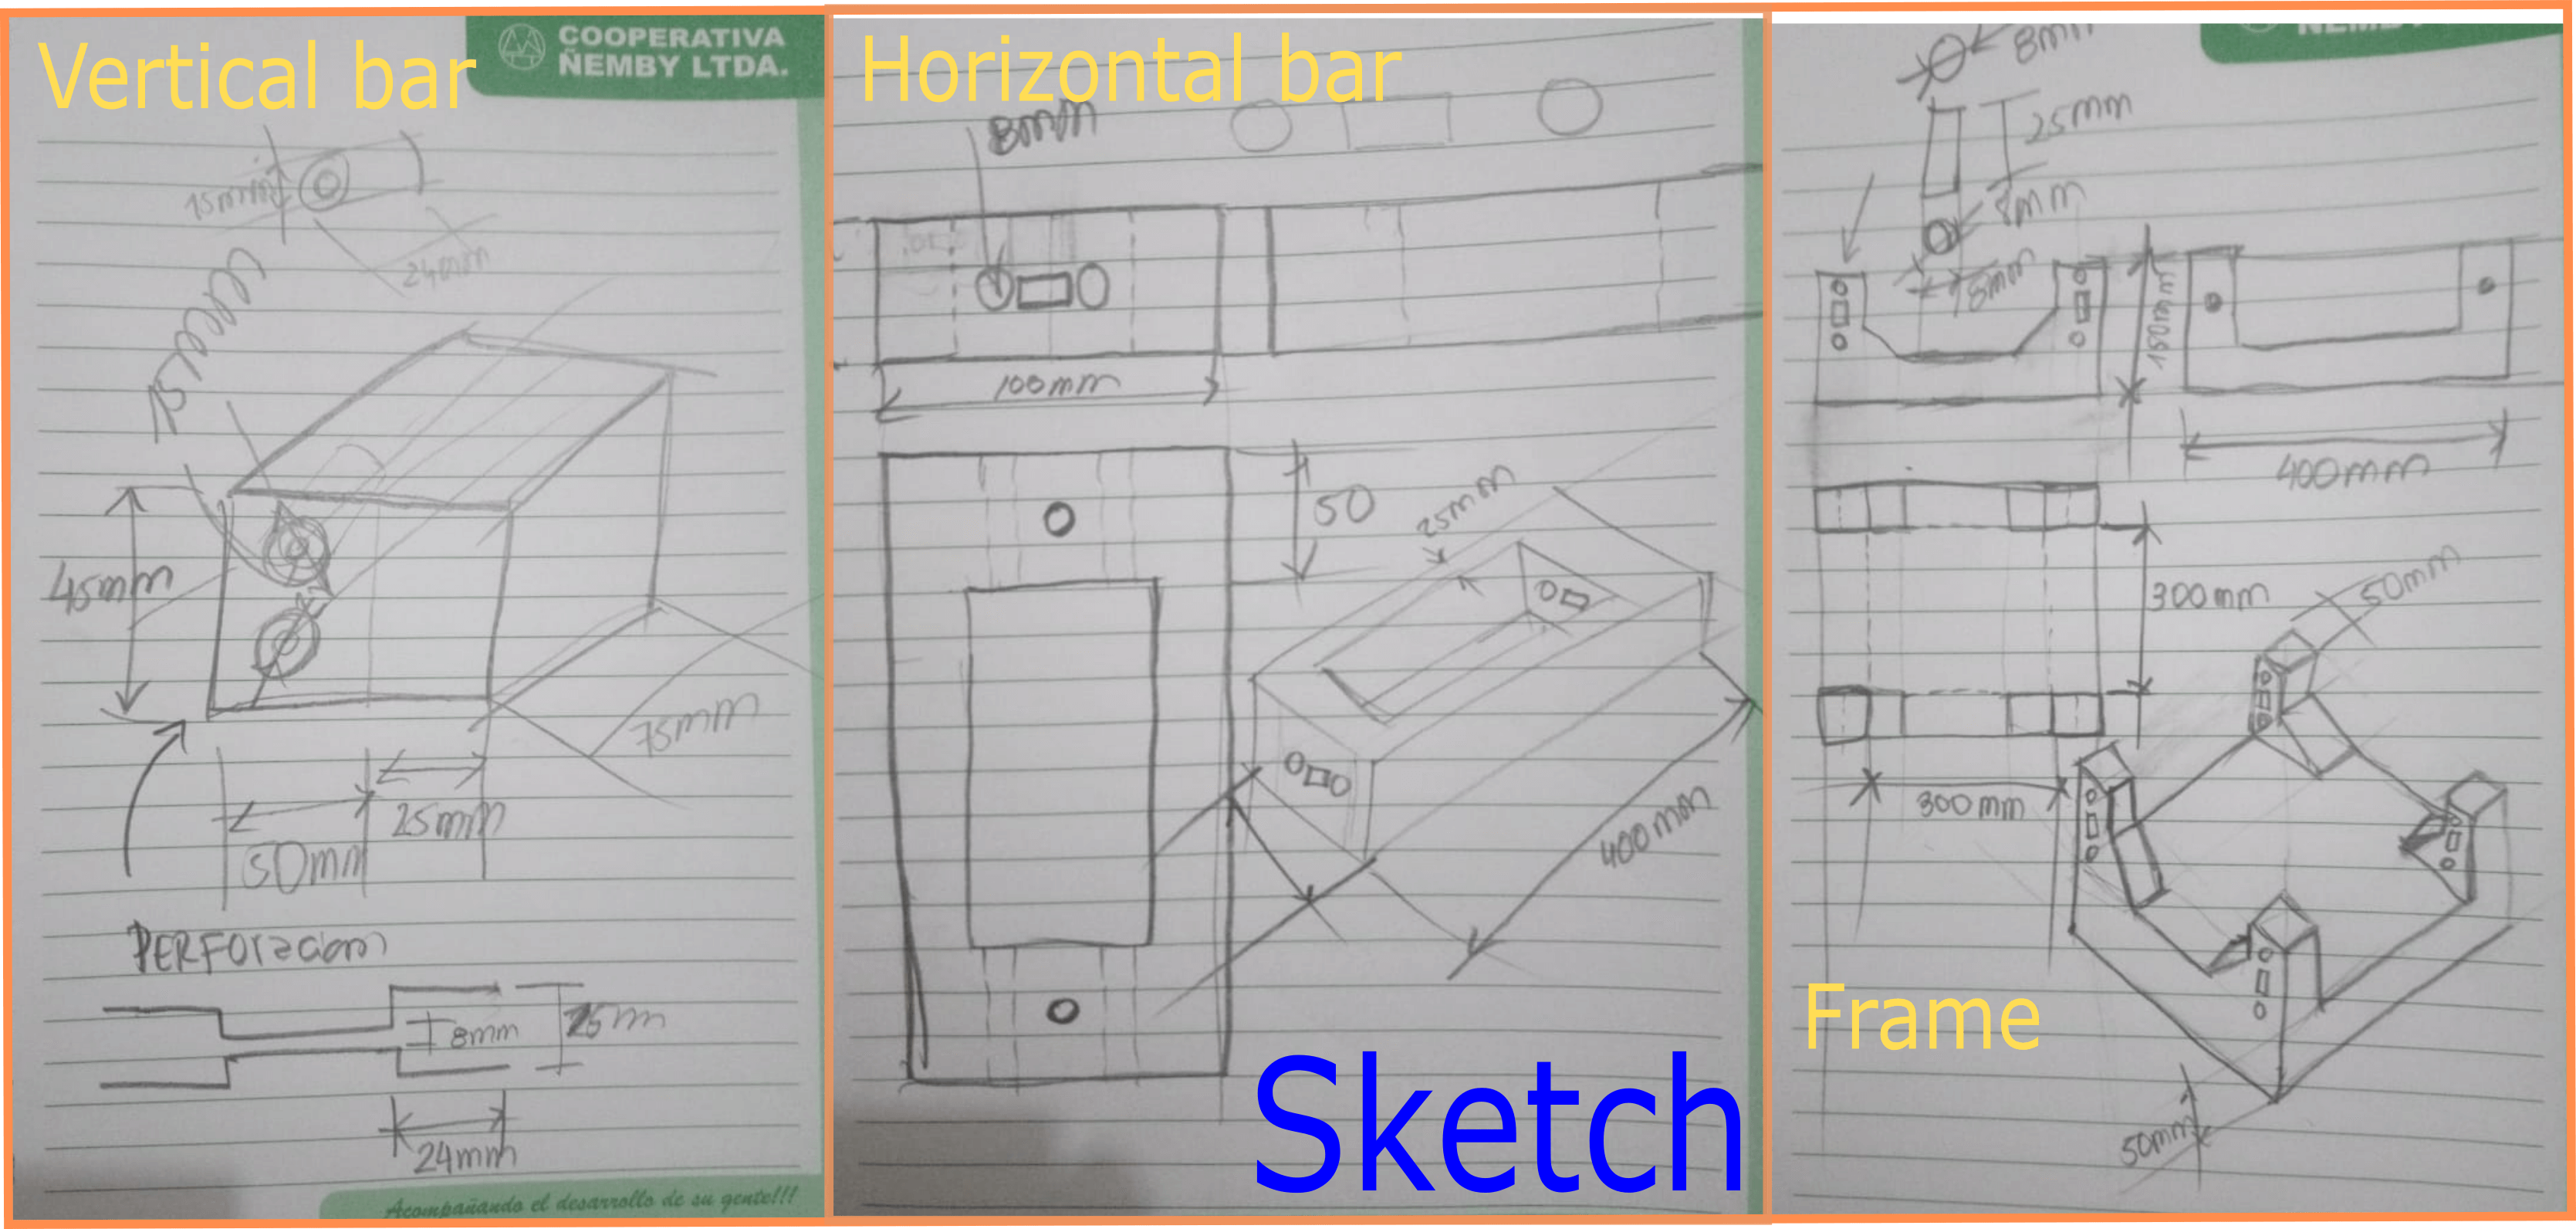 Vertical bar
COOPERATIVA
ÑEMBY LTDA.
15mm
24mm
45mm
75mm
25mm
50mm
PERFOracion
8mm
25m
24mm
Acompañando el desarrollo de su gente!!!
Horizontal bar
8mm
100mm
50
25mm
400mm
Sketch
ÑEMBY
8mm
25mm
8mm
8mm
150mm
400mm
300mm
50mm
300mm
Frame
50mm